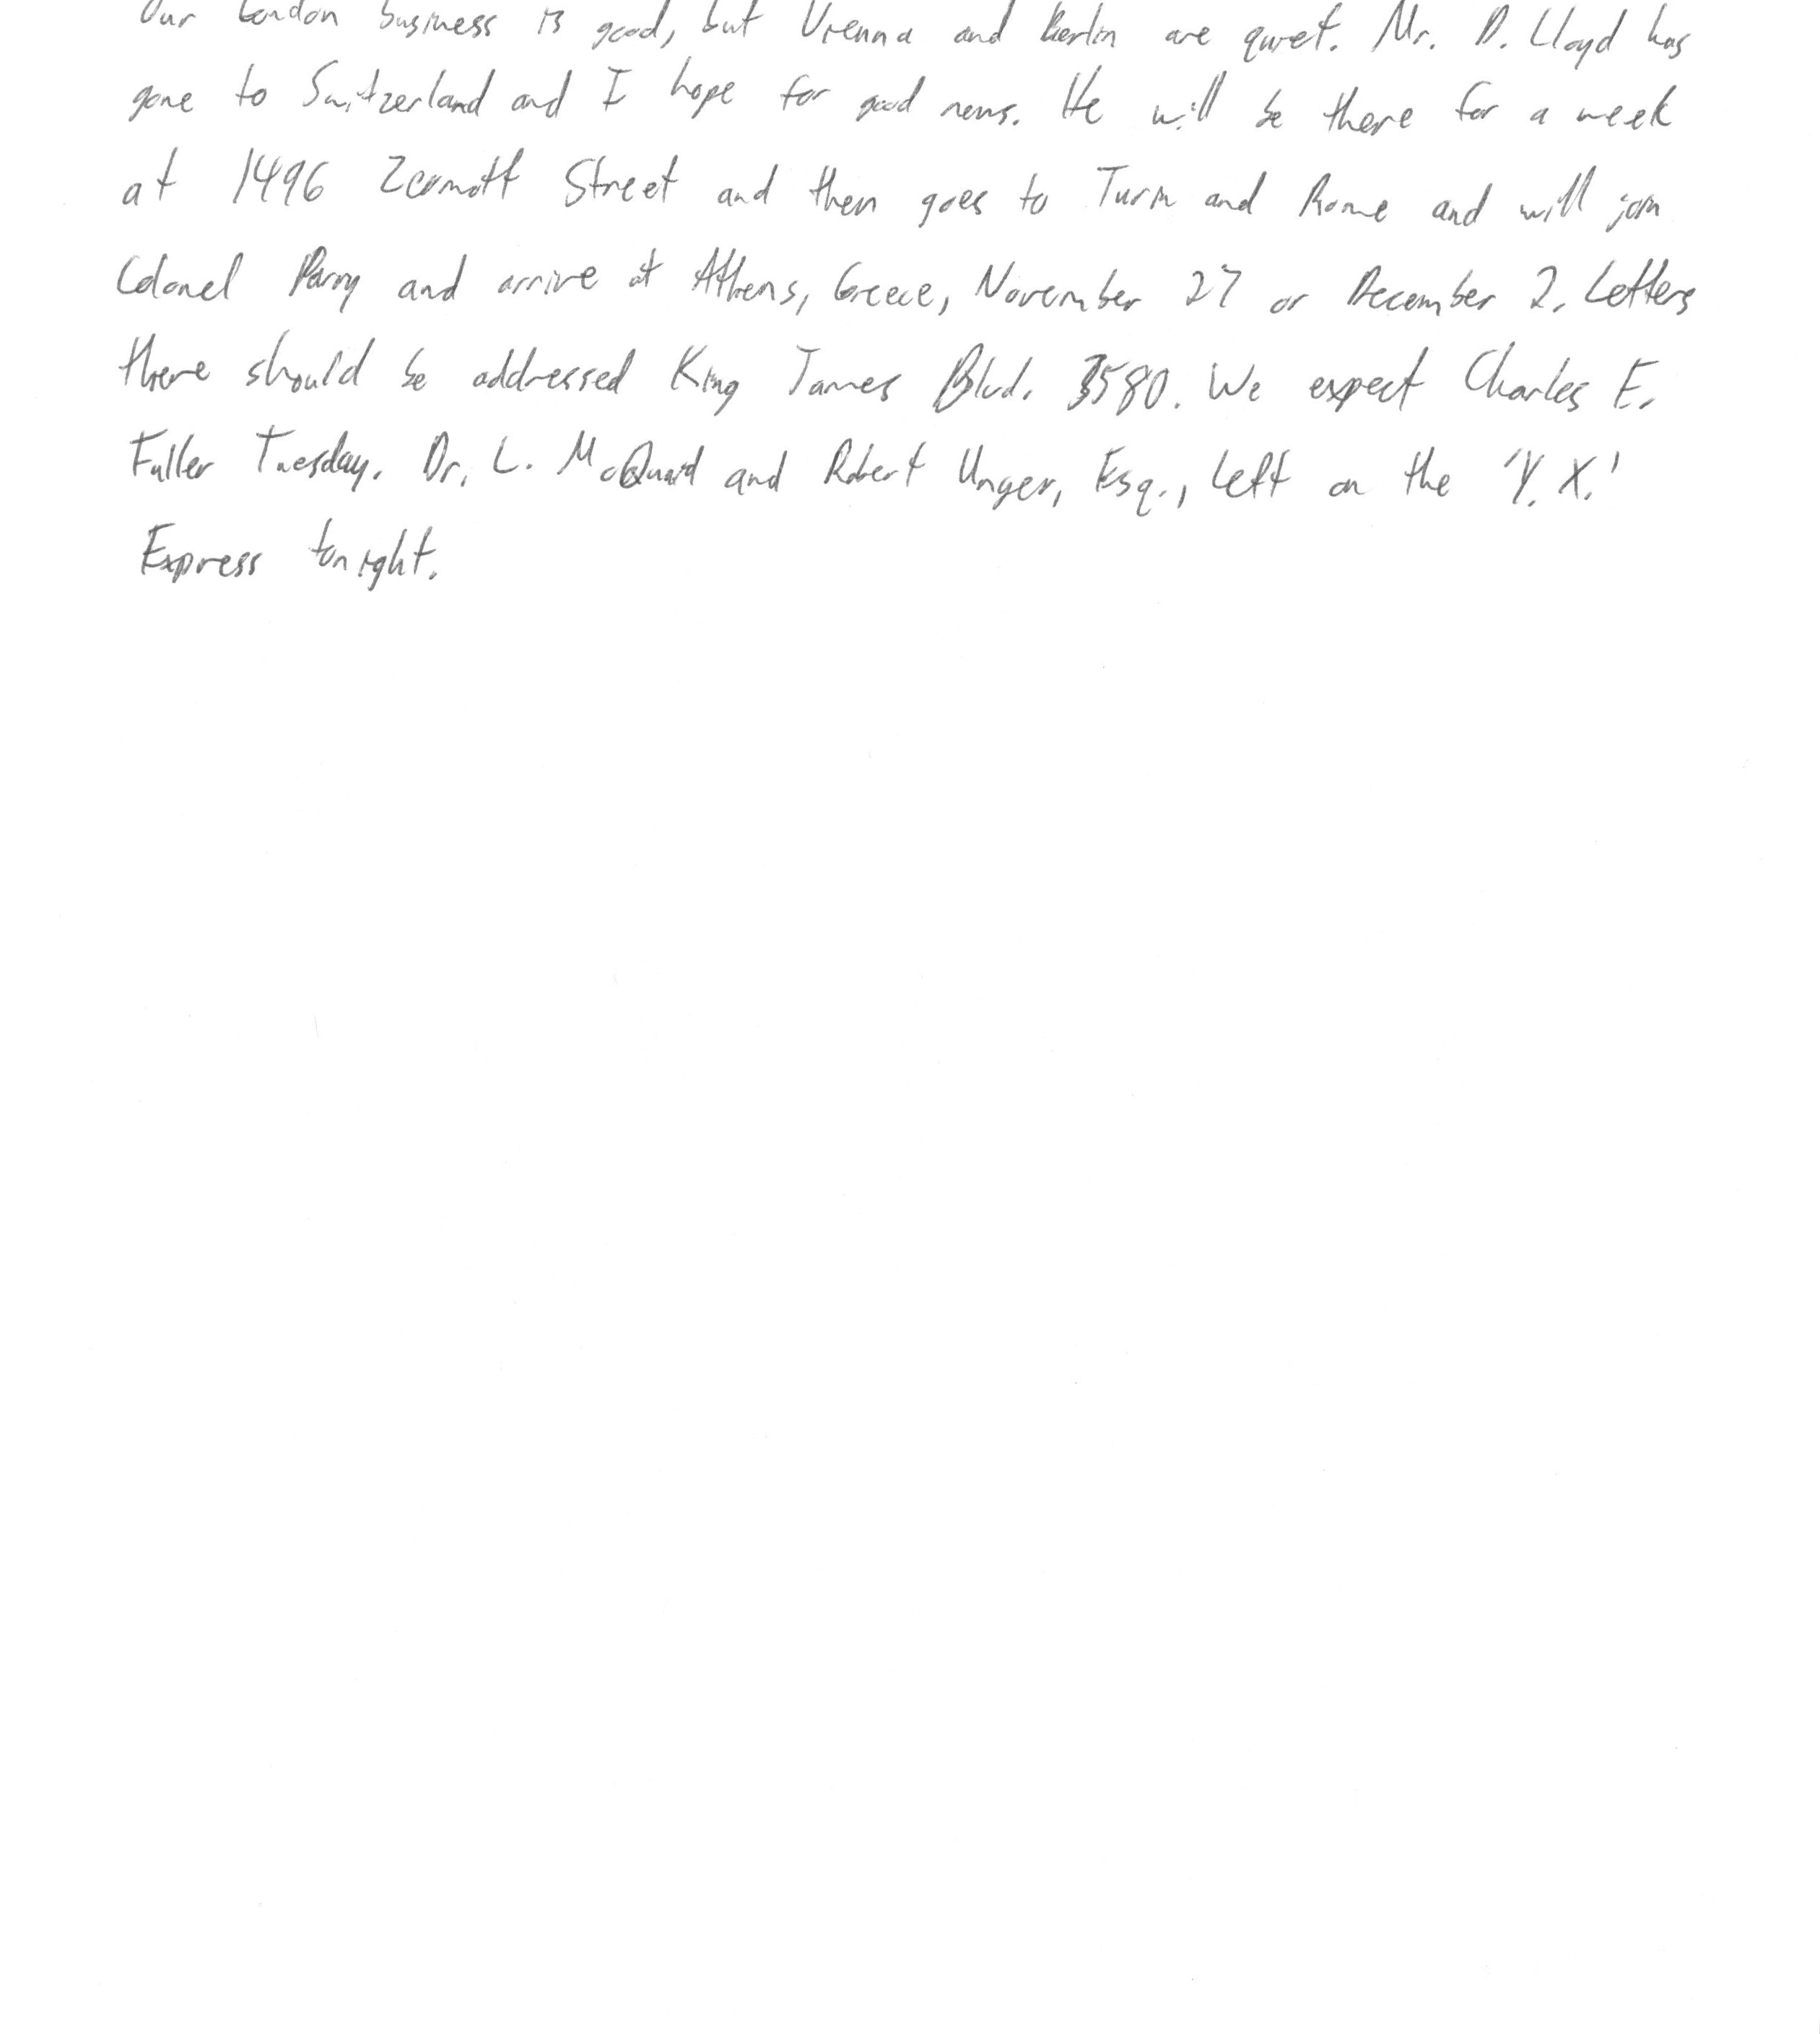 Our London business is good, but Vienna and Berlin are quiet. Mr. D. Lloyd has
gone to Switzerland and I hope for good news. He will be there for a week
at 1496 Zermott Street and then goes to Turin and Rome and will join
Colonel Parry and arrive at Athens, Greece, November 27 or December 2. Letters
there should be addressed King James Blvd. 3580. We expect Charles E.
Fuller Tuesday. Dr. L. McQuaid and Robert Unger, Esq., left on the 'Y. X.'
Express tonight.